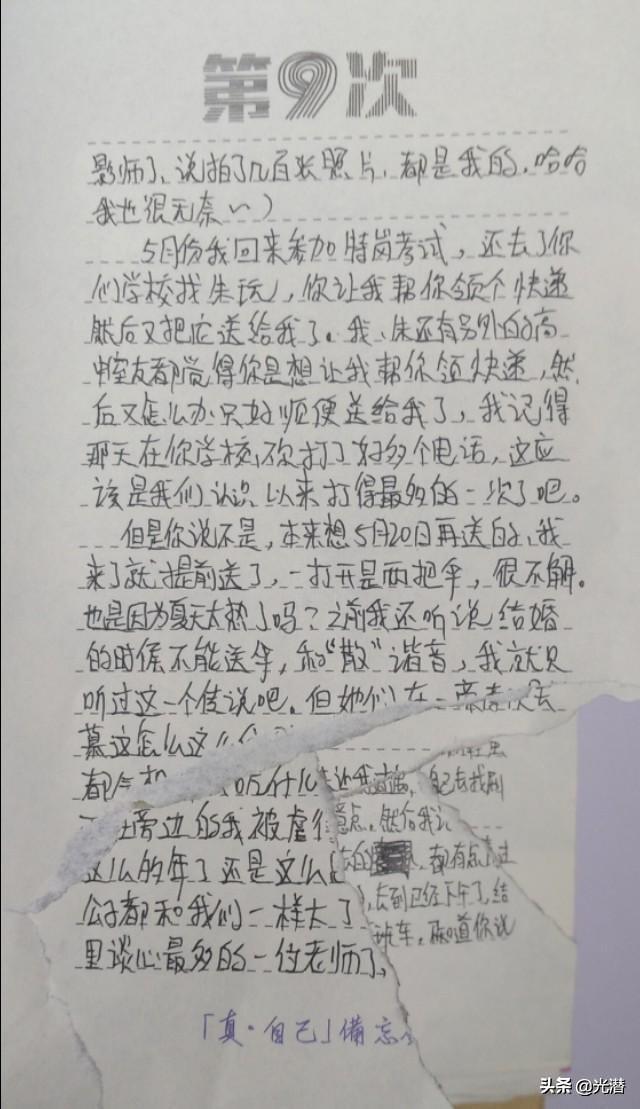 第9次
影师了、说拍了几百张照片，都是我的，哈哈
我也很无奈~）
5月份我回来参加特岗考试，还去了你
们学校找朱玩，你让我帮你领个快递
然后又把它送给我了。我、朱还有另外的高
中室友都觉得你是想让我帮你领快递，然
后又怎么办只好顺便送给我了，我记得
那天在你学校打了好多个电话，这应
该是我们认识以来打得最多的一次了吧。
但是你说不是，本来想5月20日再送的、我
来了就提前送了，一打开是两把伞，很不解。
也是因为夏天太热了吗？之前我还听说结婚
的时候不能送伞，和“散”谐音，我就只
听过这一个传说吧。但她们在一
慕这怎么这么
都
旁边的我被虐
意点。然后我
这么的年了还是这么
都有点
公子都和我们一样大了
去到已经下午了，结
里谈心最多的一位老师了、
班车，
知道你说
「真·自己」備忘
头条 @光潜